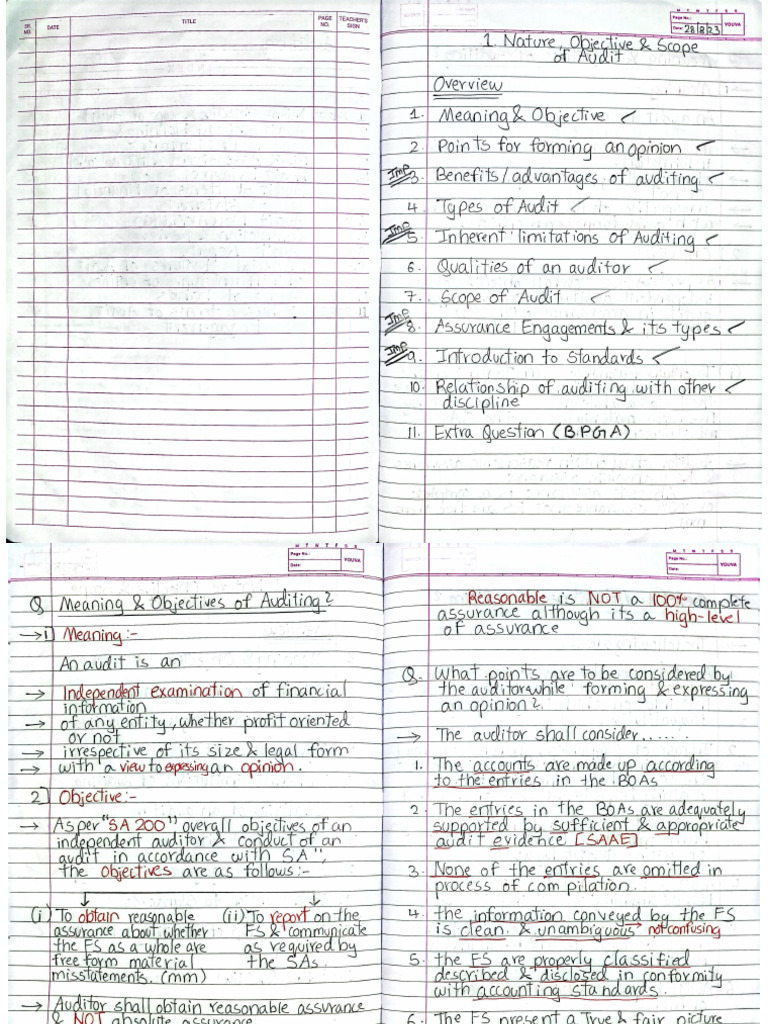 SR. NO.
DATE
TITLE
PAGE NO.
TEACHER'S SIGN
M T W T F S S
Page No.:
Date: 28/8/23
YOUVA
1. Nature, Objective & Scope
of Audit
Overview
1. Meaning & Objective ✓
2. Points for forming an opinion ✓
Imp 3. Benefits/advantages of auditing ✓
4. Types of Audit ✓
Imp 5. Inherent limitations of Auditing ✓
6. Qualities of an auditor ✓
7. Scope of Audit ✓
Imp 8. Assurance Engagements & its types ✓
Imp 9. Introduction to Standards ✓
10. Relationship of auditing with other ✓
discipline
11. Extra Question (B.P.G.A)
M T W T F S S
Page No.:
Date:
YOUVA
Q Meaning & Objectives of Auditing?
→ 1] Meaning:-
An audit is an
→ Independent examination of financial
information
→ of any entity, whether profit oriented
or not
→ irrespective of its size & legal form
→ with a view to expessing an opinion.
2] Objective:-
→ As per "SA 200" overall objectives of an
independent auditor & conduct of an
audit in accordance with SA",
the objectives are as follows:-
(i) To obtain reasonable
assurance about whether
the FS as a whole are
free form material
misstatements. (mm)
(ii) To report on the
FS & communicate
as required by
the SAs.
→ Auditor shall obtain reasonable assurance
& NOT absolute assurance
M T W T F S S
Page No.:
Date:
YOUVA
Reasonable is NOT a 100% complete
assurance although its a high-level
of assurance
Q. What points are to be considered by
the auditor while forming & expressing
an opinion?
→ The auditor shall consider......
1. The accounts are made up according
to the entries in the BOAs
2. The entries in the BOAs are adequately
supported by sufficient & appropriate
audit evidence [SAAE]
3. None of the entries are omitted in
process of compilation.
4. the information conveyed by the FS
is clean & unambiguous → not confusing
5. the FS are properly classified
described & disclosed in conformity
with accounting standards.
6. The FS present a True & fair picture